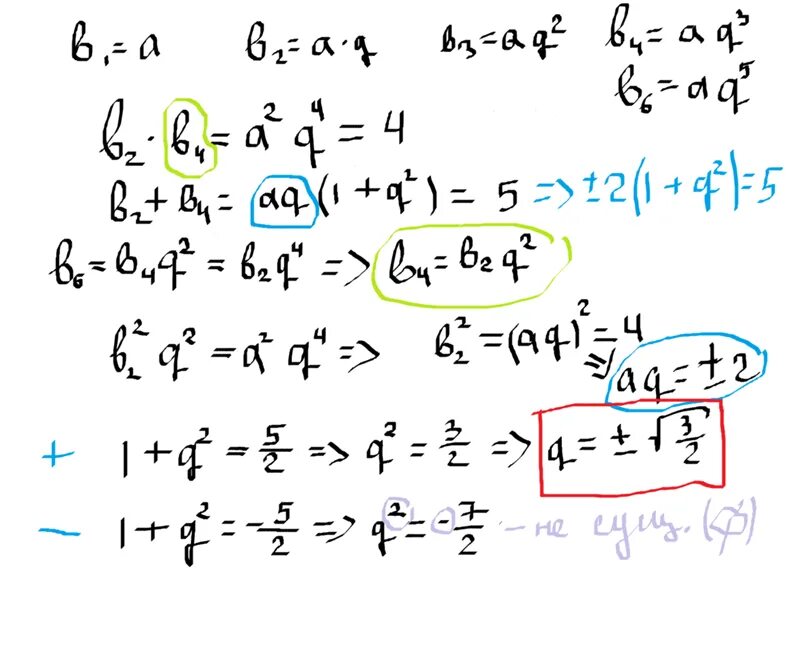 в₁ = a в₂ = a · q в₃ = a q² в₄ = a q³
в₆ = a q⁵
в₂ · в₄ = a² q⁴ = 4
в₂ + в₄ = aq (1 + q²) = 5 => ±2(1 + q²) = 5
в₆ = в₄ q² = в₂ q⁴ => в₄ = в₂ q²
в₂² q² = a² q⁴ => в₂² = (aq)² = 4
=> aq = ±2
+ 1 + q² = 5/2 => q² = 3/2 => q = ±√(3/2)
− 1 + q² = −5/2 => q² = −7/2 – не сущ. (∅)